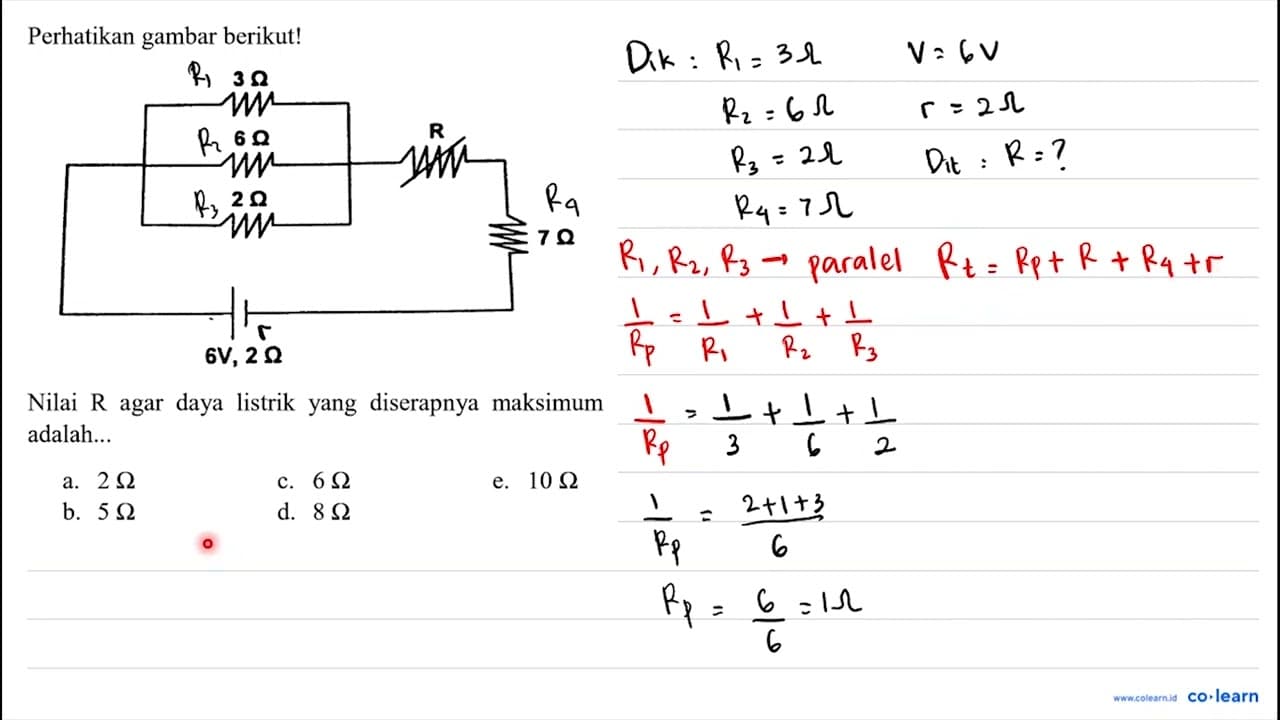 Perhatikan gambar berikut!
R₁ 3 Ω
R₂ 6 Ω
R₃ 2 Ω
R
R₄
7 Ω
r
6V, 2 Ω
Nilai R agar daya listrik yang diserapnya maksimum
adalah...
a. 2 Ω c. 6 Ω e. 10 Ω
b. 5 Ω d. 8 Ω
Dik : R₁ = 3Ω V = 6V
R₂ = 6Ω r = 2Ω
R₃ = 2Ω Dit : R = ?
R₄ = 7Ω
R₁, R₂, R₃ → paralel Rt = Rp + R + R₄ + r
1/Rp = 1/R₁ + 1/R₂ + 1/R₃
1/Rp = 1/3 + 1/6 + 1/2
1/Rp = 2+1+3/6
Rp = 6/6 = 1Ω
www.colearn.id co·learn